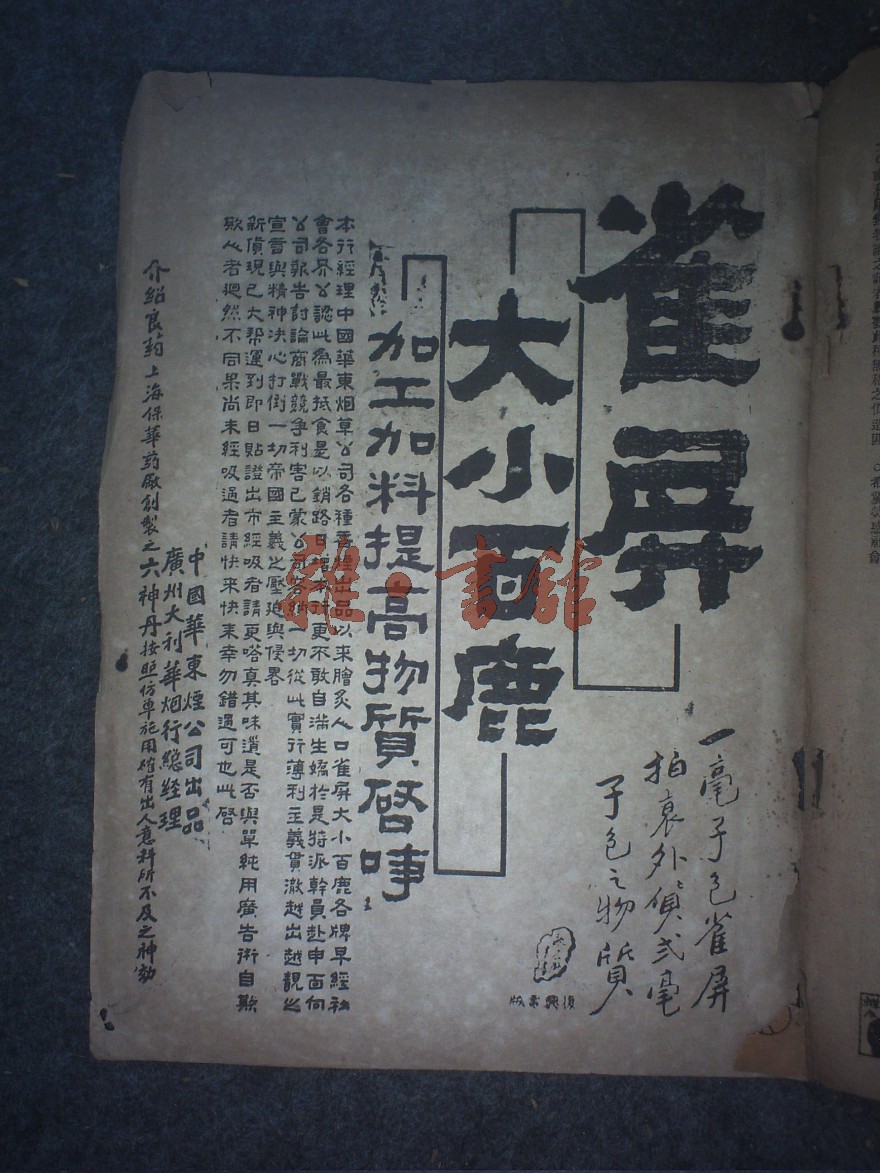 雀屏
大小百鹿
加工加料提高物質啓事
一毫子包雀屏
拍裏外價弍毫
子包之物質
復興承版
本行經理中國華東烟草公司各種香煙出品以來膾炙人口雀屏大小百鹿各牌早經社
會各界公認此為最抵食是以銷路日增本行更不敢自滿生嬌於是特派幹員赴申面向
公司報告討論商戰競争利害已蒙公司容納一切從此實行薄利主義貫澈越出越靚之
宣言與精神决心打倒一切帝國主義之壓迫與侵畧
新貨現已大帮運到即日貼證出市經吸者請更嗒真其味道是否與單純用廣告術自欺
欺人者廽然不同果尚未經吸過者請快來快来幸勿錯過可也此啓
中國華東煙公司出品
廣州大利華烟行總經理
介紹良药上海保華药廠創製之六神丹按照仿單施用確有出人意料所不及之神効
雜·書館